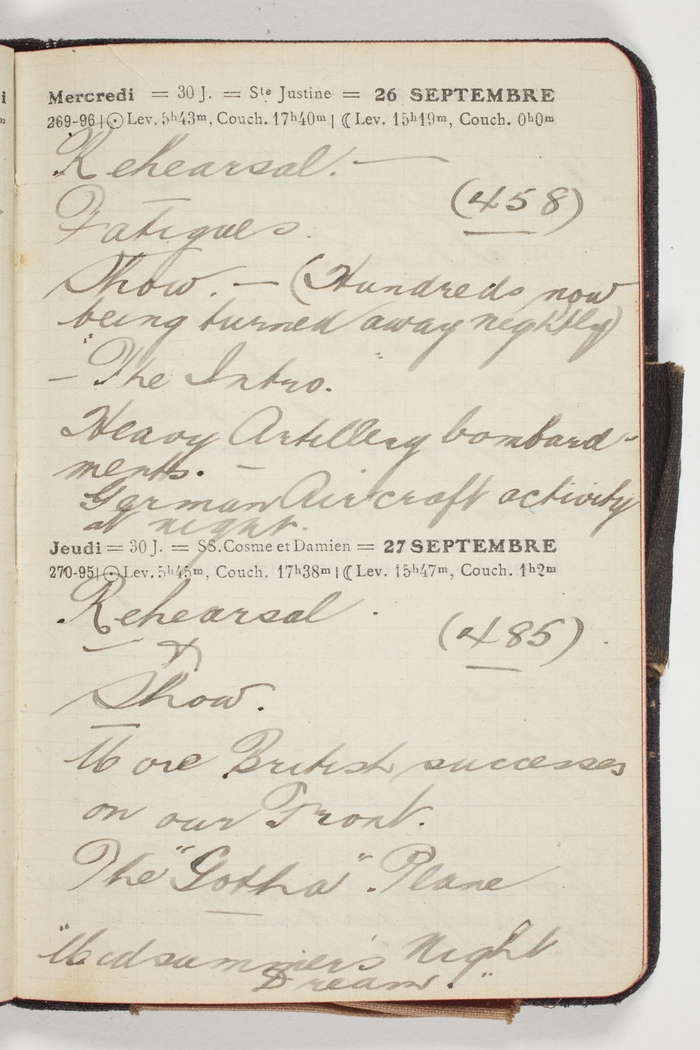 Mercredi = 30 J. = Ste Justine = 26 SEPTEMBRE
269-96 | ☉ Lev. 5h43m, Couch. 17h40m | ☾ Lev. 15h19m, Couch. 0h0m
Rehearsal. —
(458)
Fatigues.
Show. — (Hundreds now
being turned away nightly)
— "The Intro."
Heavy Artillery bombard-
ments. —
German Aircraft activity
at night.
Jeudi = 30 J. = SS. Cosme et Damien = 27 SEPTEMBRE
270-95 | ☉ Lev. 5h45m, Couch. 17h38m | ☾ Lev. 15h47m, Couch. 1h2m
Rehearsal.
(485).
— &
Show.
More British successes
on our Front.
The "Gotha" Plane
"Midsummer's Night
Dream."